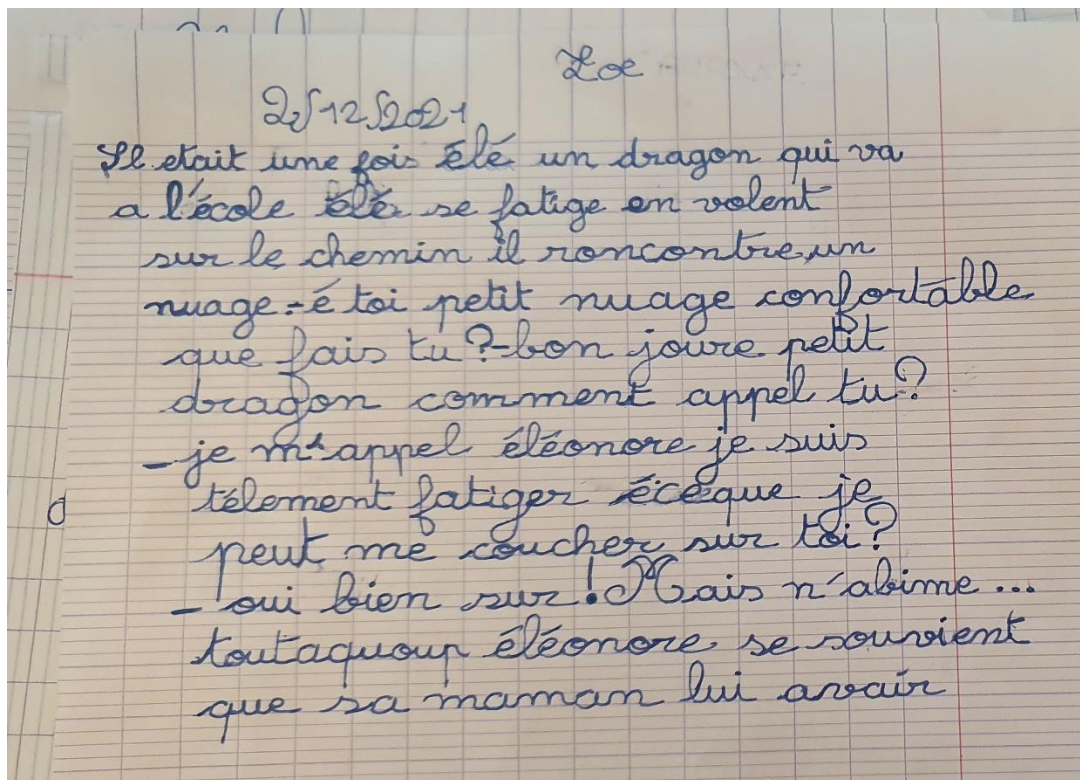 Zoe
2/12/2021
Il etait une fois élé un dragon qui va
a l'école élé se fatige en volent
sur le chemin il roncontre un
nuage.-é toi petit nuage confortable
que fais tu?-bon joure petit
dragon comment appel tu?
-je m'appel éléonore je suis
télement fatiger écéque je
peut me coucher sur toi?
- oui bien sur! Mais n'abime...
toutaquoup éléonore se souvient
que sa maman lui avair